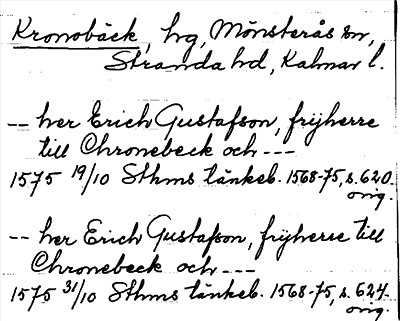 Kronobäck, hg, Mönsterås sn,
Stranda hd, Kalmar l.
-- her Erich Gustafson, frijherre
till Chronebeck och ---
1575 19/10 Sthms tänkeb. 1568-75, s. 620.
orig.
-- her Erich Gustafson, frijherre till
Chronebeck och ---
1575 31/10 Sthms tänkeb. 1568-75, s. 624.
orig.